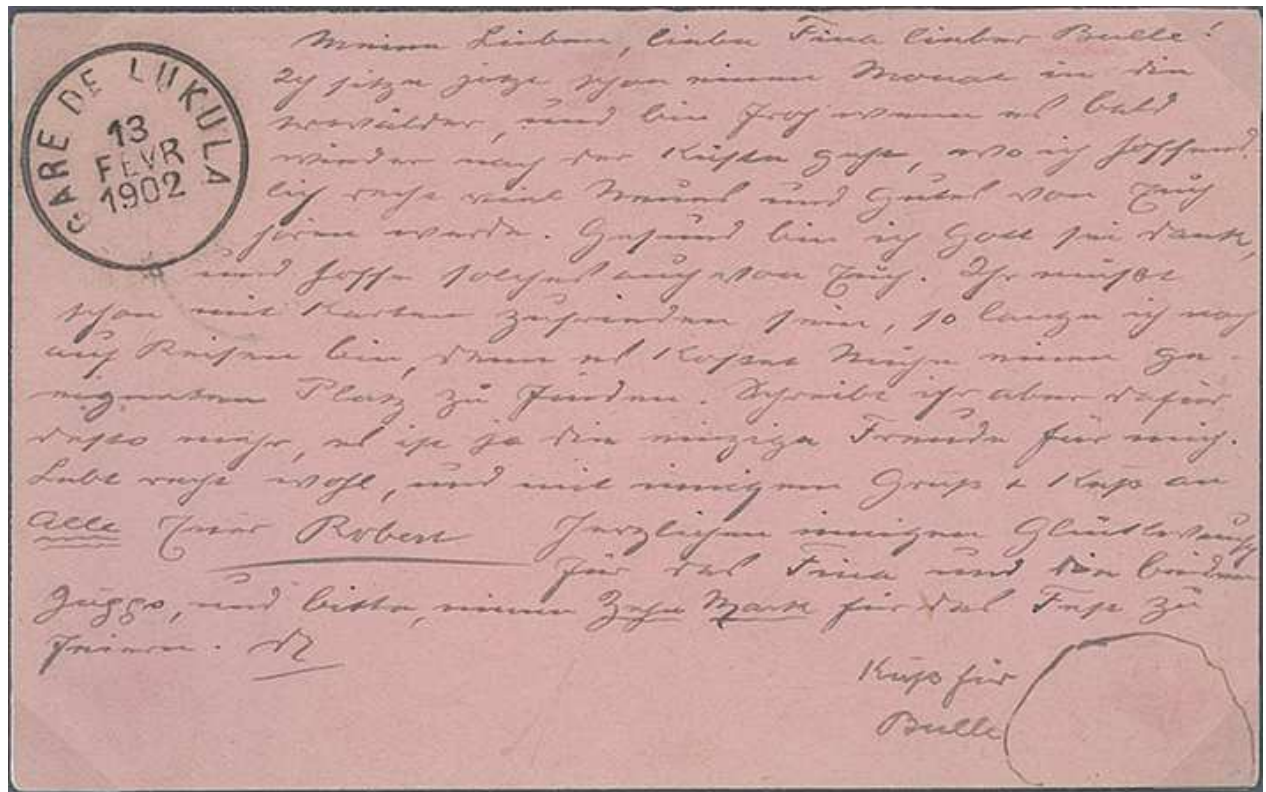 GARE DE LUKULA
13
FEVR
1902
Meine Lieben, liebe Fina lieber Bulle!
Ich sitze jetzt schon einen Monat in den
Urwälder, und bin froh wenn es bald
wieder nach der Küste geht, wo ich hoffent-
lich recht viel Neues und Gutes von Euch
hören werde. Gesund bin ich Gott sei dank,
und hoffe solches auch von Euch. Ihr müßt
schon mit Karten zufrieden sein, so lange ich noch
auf Reisen bin, denn es kostet Mühe einen ge-
eigneten Platz zu finden. Schreibt ihr aber dafür
desto mehr, es ist ja die einzige Freude für mich.
Lebt recht wohl, und mit innigem Gruß + Kuß an
Alle Euer Robert Herzlichen innigen Glückwunsch
für das Fina und die beiden
und bitte, einen Zehn Mark für das Fest zu
feiern.
Kuß für
Bulle